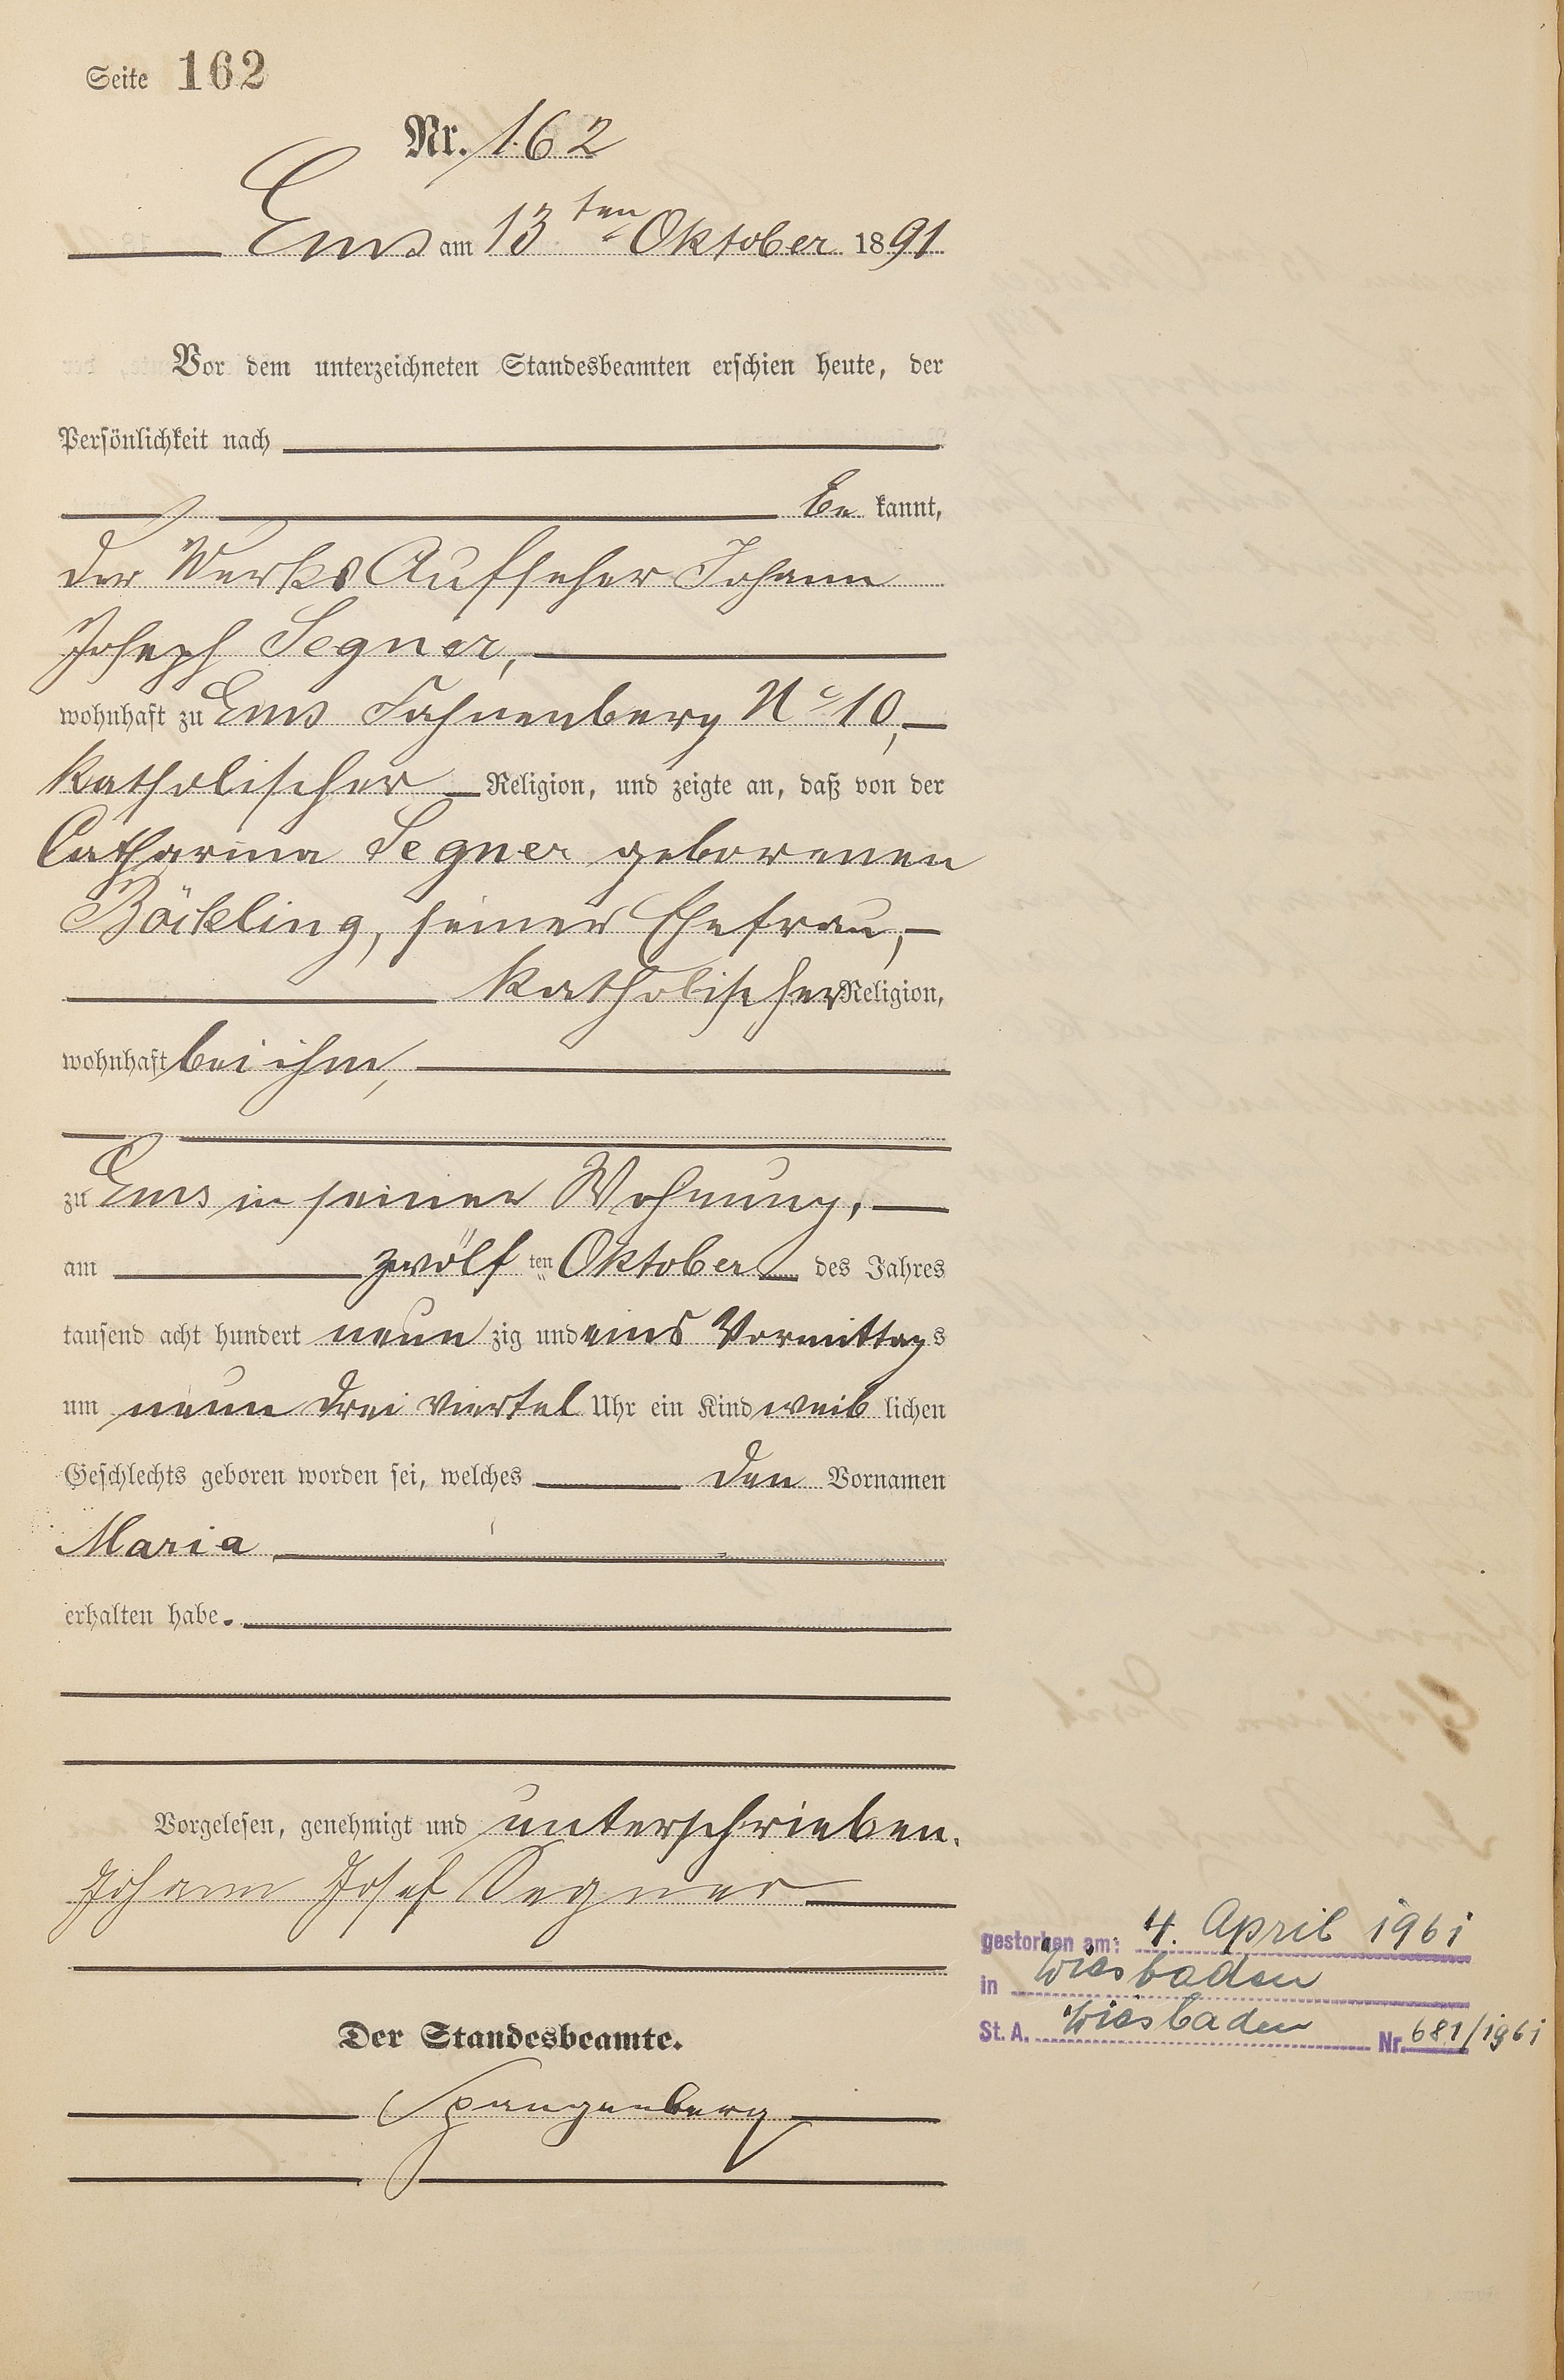 Seite 162
Nr. 162
Ems am 13ten Oktober 1891
Vor dem unterzeichneten Standesbeamten erschien heute, der
Persönlichkeit nach
be kannt,
der Werks Aufseher Johann
Joseph Segner,
wohnhaft zu Ems Fahnenberg No 10,
katholischer Religion, und zeigte an, daß von der
Catharina Segner geborenen
Böckling, seiner Ehefrau,
katholischer Religion,
wohnhaft bei ihm,
zu Ems in seiner Wohnung,
am zwölf ten Oktober des Jahres
tausend acht hundert neun zig und eins Vormittags
um neun drei viertel Uhr ein Kind weib lichen
Geschlechts geboren worden sei, welches den Vornamen
Maria
erhalten habe.
Vorgelesen, genehmigt und unterschrieben.
Johann Josef Segner
Der Standesbeamte.
Spangenberg
gestorben am: 4. April 1961
in Wiesbaden
St. A. Wiesbaden Nr. 681/1961